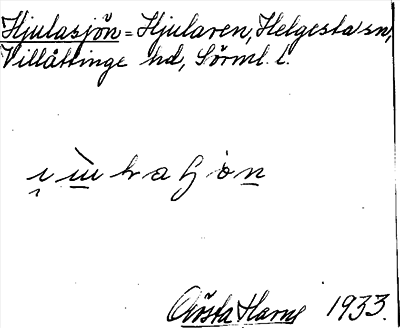 Hjulasjön = Hjularen, Helgesta sn,
Villåttinge hd, Sörml. l.
Gösta Harne 1933.